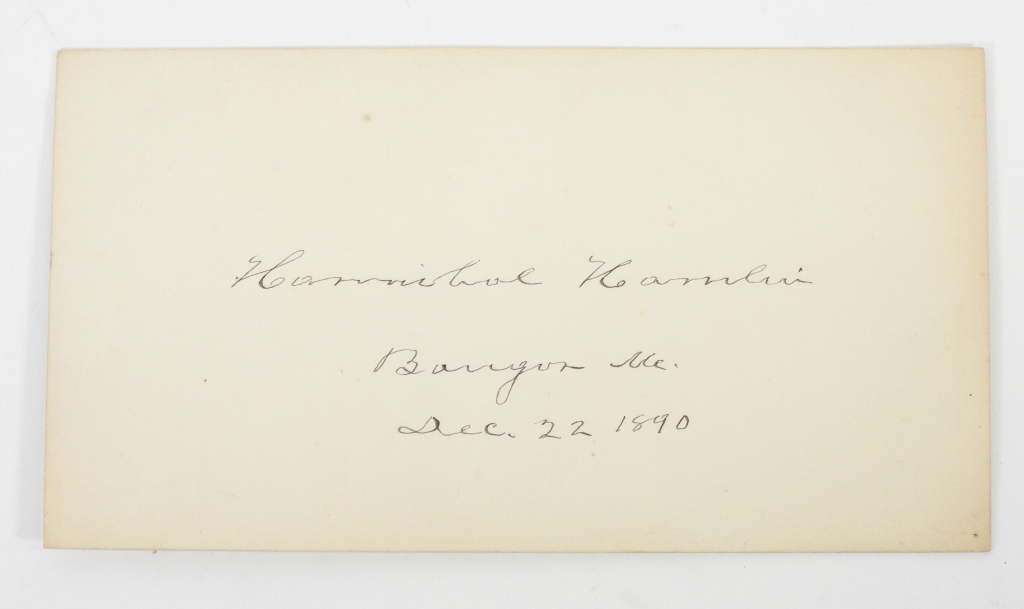 Hannibal Hamlin
Bangor Me.
Dec. 22 1890